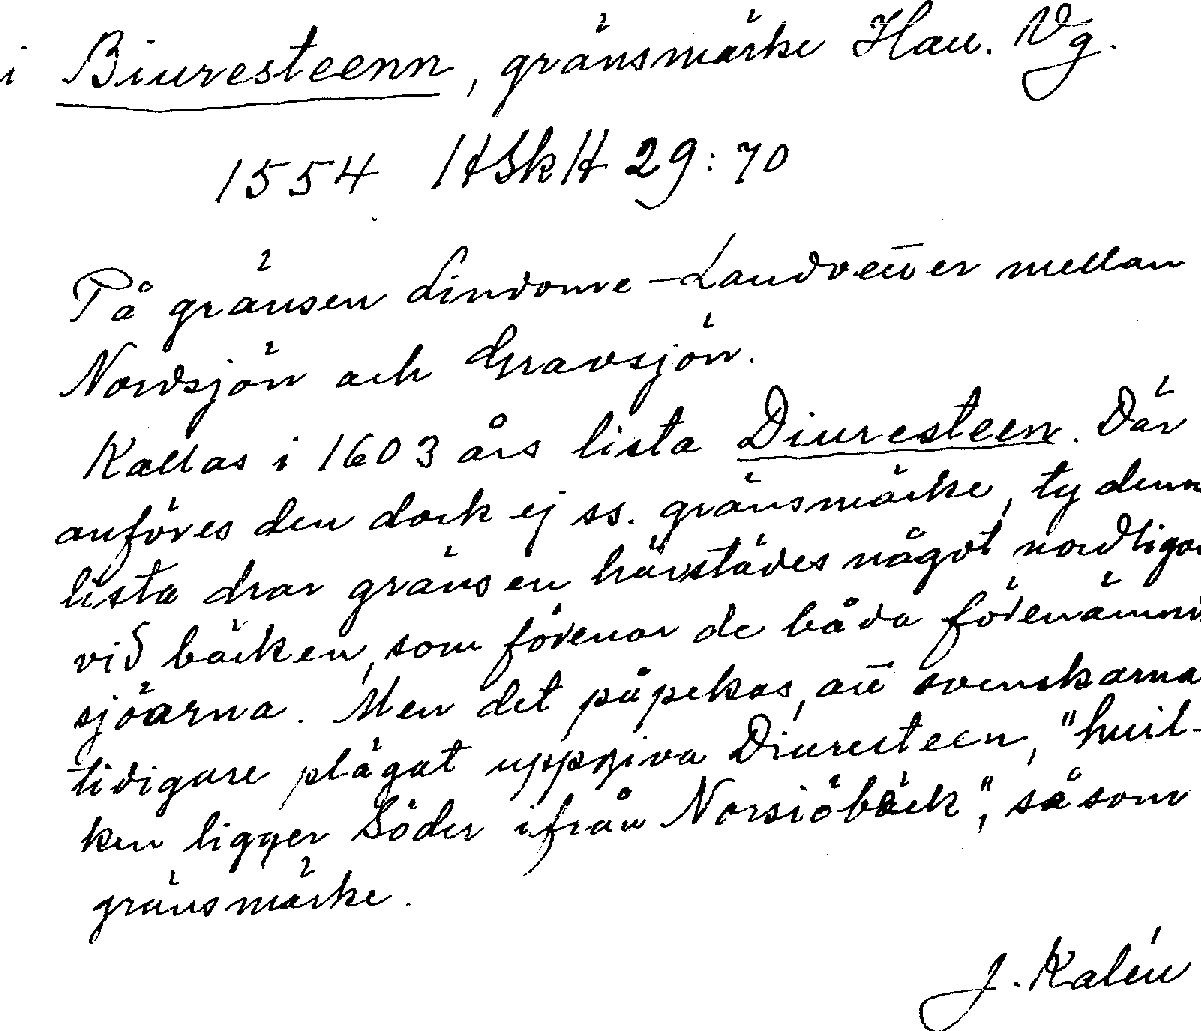 i Biuresteenn, gränsmärke Hall. Vg.
1554 HSkH 29:70
På gränsen Lindome - Landvetter mellan
Nordsjön och Gravsjön.
Kallas i 1603 års lista Diuresteen. Där
anföres den dock ej ss. gränsmärke, ty denn
lista drar gränsen härstädes något nordligar
vid bäcken, som förenar de båda förenämnd
sjöarna. Men det påpekas, att svenskarna
tidigare plägat uppgiva Diuresteen, "huil-
ken ligger Söder ifrån Norsiöbäck", såsom
gränsmärke.
J. Kalén